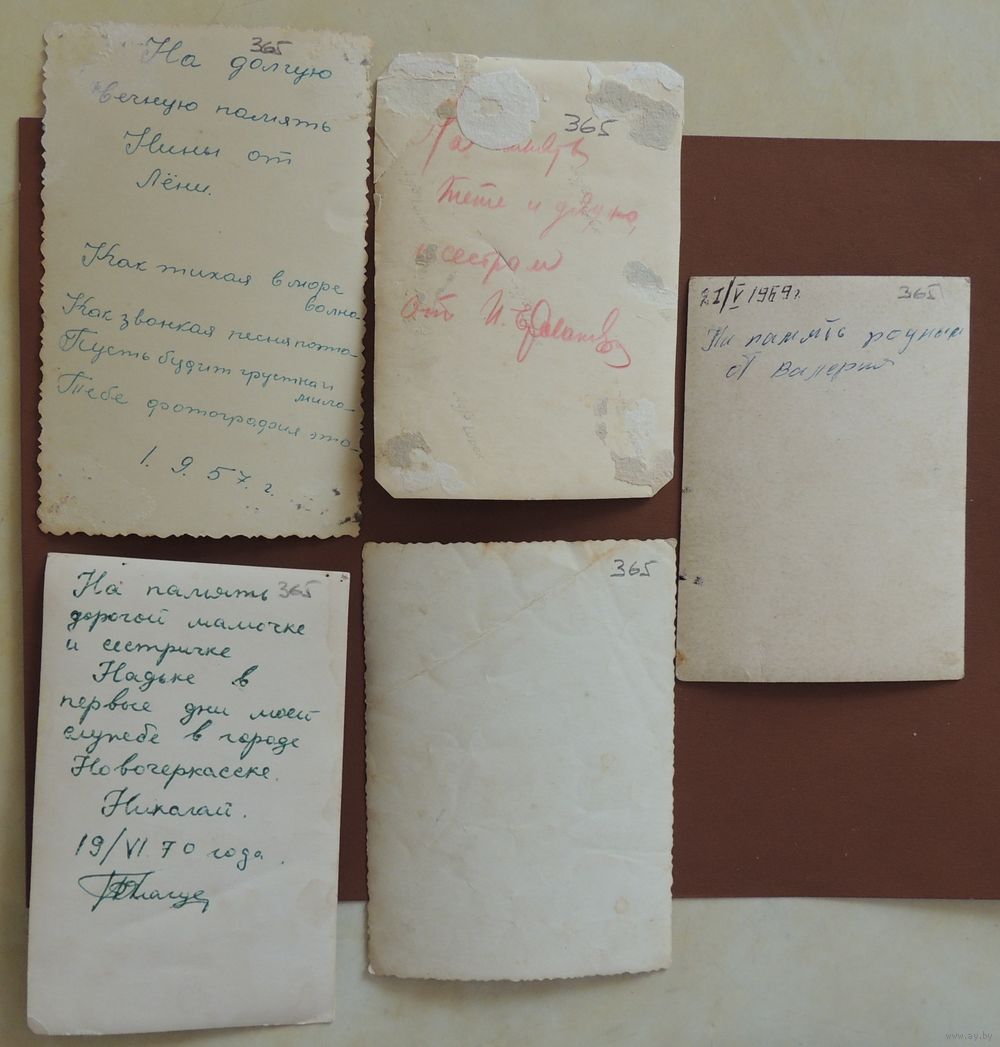 365
На долгую
вечную память
Нины от
Лёни.
Как тихая в море
волна
Как звонкая песня поэта
Пусть будит грустна и
мила
Тебе фотография эта
1. 9. 57. г.
365
На
тёте и дяде,
и сестрам
от И.
21/V 1969 г.
365
На память родным
от Валерия
На память
365
дорогой мамочке
и сестричке
Надьке в
первые дни моей
службе в городе
Новочеркасске.
Николай.
19/VI 70 года.
365
www.ay.by